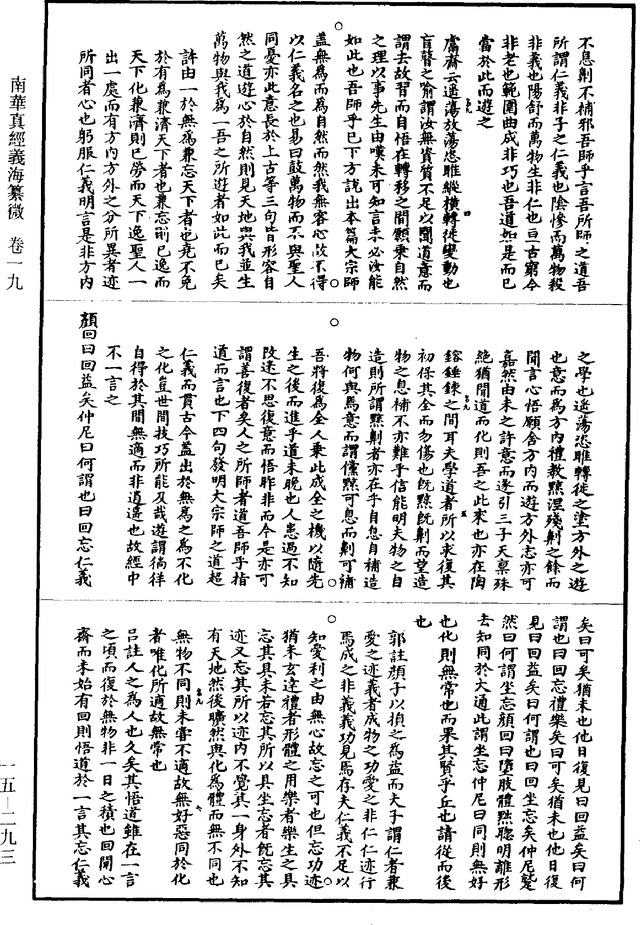 不息劓不補邪吾師乎言吾所師之道吾
所謂仁義非子之仁義也陰慘而萬物殺
非義也陽舒而萬物生非仁也亘古窮今
非老也範圍曲成非巧也吾道如是而已
當於此而遊之
鬳齋云遥蕩放蕩恣睢縱橫轉徙變動也
盲瞽之喻謂汝無資質不足以聞道意而
謂去故習而自悟在轉移之間願乘自然
之理以事先生由嘆未可知言未必汝能
如此也吾師乎已下方說出本篇大宗師
盖無為而為自然而然我無容心故不得
以仁義名之也易曰鼓萬物而不與聖人
同憂亦此意長於上古等三句皆形容自
然之道遊心於自然則見天地與我並生
萬物與我為一吾之所遊者如此而已矣
許由一於無為兼忘天下者也堯不免
於有為兼濟天下者也兼忘則已逸而
天下化兼濟則已勞而天下逸聖人一
出一處而有方内方外之分所異者迹
所同者心也躬服仁義明言是非方内
之學也遥蕩恣睢轉徙之塗方外之遊
也意而為方内禮教黥涅殘劓之餘而
聞言心悟願舍方内而遊方外志亦可
嘉然由未之許意而遂引三子天稟殊
絶猶聞道而化則吾之此來也亦在陶
鎔錘鍊之間耳夫學道者所以求復其
初保其全而勿傷也既黥既劓而望造
物之息補不亦難乎信能明夫物之自
造則所謂黥劓者亦在乎自息自補造
物何與焉意而謂儻黥可息而劓可補
吾將復為全人乘此成全之機以隨先
生之後而進乎道未晚也人患過不知
改迷不思復意而悟昨非而今是亦可
謂善復者矣人之所師者道吾師乎指
道而言也下四句發明大宗師之道超
仁義而貫古今盖出於無為之為不化
之化豈世間技巧所能及哉遊謂徜徉
自得於其間無適而非逍遥也故經中
不一言之
顏回曰回益矣仲尼曰何謂也曰回忘仁義
矣曰可矣猶未也他日復見曰回益矣曰何
謂也曰回忘禮樂矣曰可矣猶未也他日復
見曰回益矣曰何謂也曰回坐忘矣仲尼蹵
然曰何謂坐忘顏回曰墮肢體黜聰明離形
去知同於大通此謂坐忘仲尼曰同則無好
也化則無常也而果其賢乎丘也請從而後
也
郭註顏子以損之為益而夫子謂仁者兼
愛之迹義者成物之功愛之非仁仁迹行
焉成之非義義功見焉存夫仁義不足以
知愛利之由無心故忘之可也但忘功迹
猶未玄達禮者形體之用樂者樂生之具
忘其具未若忘其所以具坐忘者既忘其
迹又忘其所以迹内不覺其一身外不知
有天地然後曠然與化為體而無不同也
無物不同則未嘗不適故無好惡同於化
者唯化所適故無常也
吕註人之為人也久矣其悟道雖在一言
之頃而復於無物非一日之積也回聞心
齋而未始有回則悟道於一言其忘仁義
南華真經義海纂微 卷一九
一五—二九三